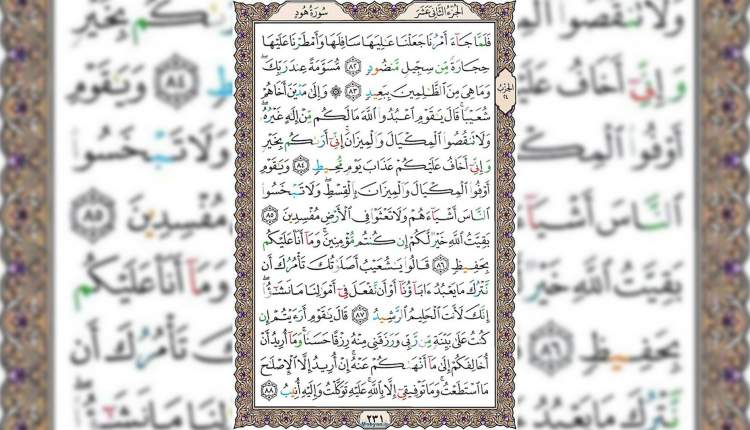 الجزء الثاني عشر
سورة هود
فَلَمَّا جَآءَ أَمْرُنَا جَعَلْنَا عَـٰلِيَهَا سَافِلَهَا وَأَمْطَرْنَا عَلَيْهَا
حِجَارَةً مِّن سِجِّيلٍ مَّنضُودٍ ٨٢ مُّسَوَّمَةً عِندَ رَبِّكَۖ
وَمَا هِىَ مِنَ ٱلظَّـٰلِمِينَ بِبَعِيدٍ ٨٣ ۞ وَإِلَىٰ مَدْيَنَ أَخَاهُمْ
شُعَيْبًاۚ قَالَ يَـٰقَوْمِ ٱعْبُدُوا۟ ٱللَّهَ مَا لَكُم مِّنْ إِلَـٰهٍ غَيْرُهُۥۖ
وَلَا تَنقُصُوا۟ ٱلْمِكْيَالَ وَٱلْمِيزَانَۚ إِنِّىٓ أَرَىٰكُم بِخَيْرٍ
وَإِنِّىٓ أَخَافُ عَلَيْكُمْ عَذَابَ يَوْمٍ مُّحِيطٍ ٨٤ وَيَـٰقَوْمِ
أَوْفُوا۟ ٱلْمِكْيَالَ وَٱلْمِيزَانَ بِٱلْقِسْطِۖ وَلَا تَبْخَسُوا۟
ٱلنَّاسَ أَشْيَآءَهُمْ وَلَا تَعْثَوْا۟ فِى ٱلْأَرْضِ مُفْسِدِينَ ٨٥
بَقِيَّتُ ٱللَّهِ خَيْرٌ لَّكُمْ إِن كُنتُم مُّؤْمِنِينَۚ وَمَآ أَنَا۠ عَلَيْكُم
بِحَفِيظٍ ٨٦ قَالُوا۟ يَـٰشُعَيْبُ أَصَلَوٰتُكَ تَأْمُرُكَ أَن
نَّتْرُكَ مَا يَعْبُدُ ءَابَآؤُنَآ أَوْ أَن نَّفْعَلَ فِىٓ أَمْوَٰلِنَا مَا نَشَـٰٓؤُا۟ۖ
إِنَّكَ لَأَنتَ ٱلْحَلِيمُ ٱلرَّشِيدُ ٨٧ قَالَ يَـٰقَوْمِ أَرَءَيْتُمْ إِن
كُنتُ عَلَىٰ بَيِّنَةٍ مِّن رَّبِّى وَرَزَقَنِى مِنْهُ رِزْقًا حَسَنًاۚ وَمَآ أُرِيدُ أَنْ
أُخَالِفَكُمْ إِلَىٰ مَآ أَنْهَىٰكُمْ عَنْهُۚ إِنْ أُرِيدُ إِلَّا ٱلْإِصْلَـٰحَ
مَا ٱسْتَطَعْتُۚ وَمَا تَوْفِيقِىٓ إِلَّا بِٱللَّهِۚ عَلَيْهِ تَوَكَّلْتُ وَإِلَيْهِ أُنِيبُ ٨٨
٢٣١